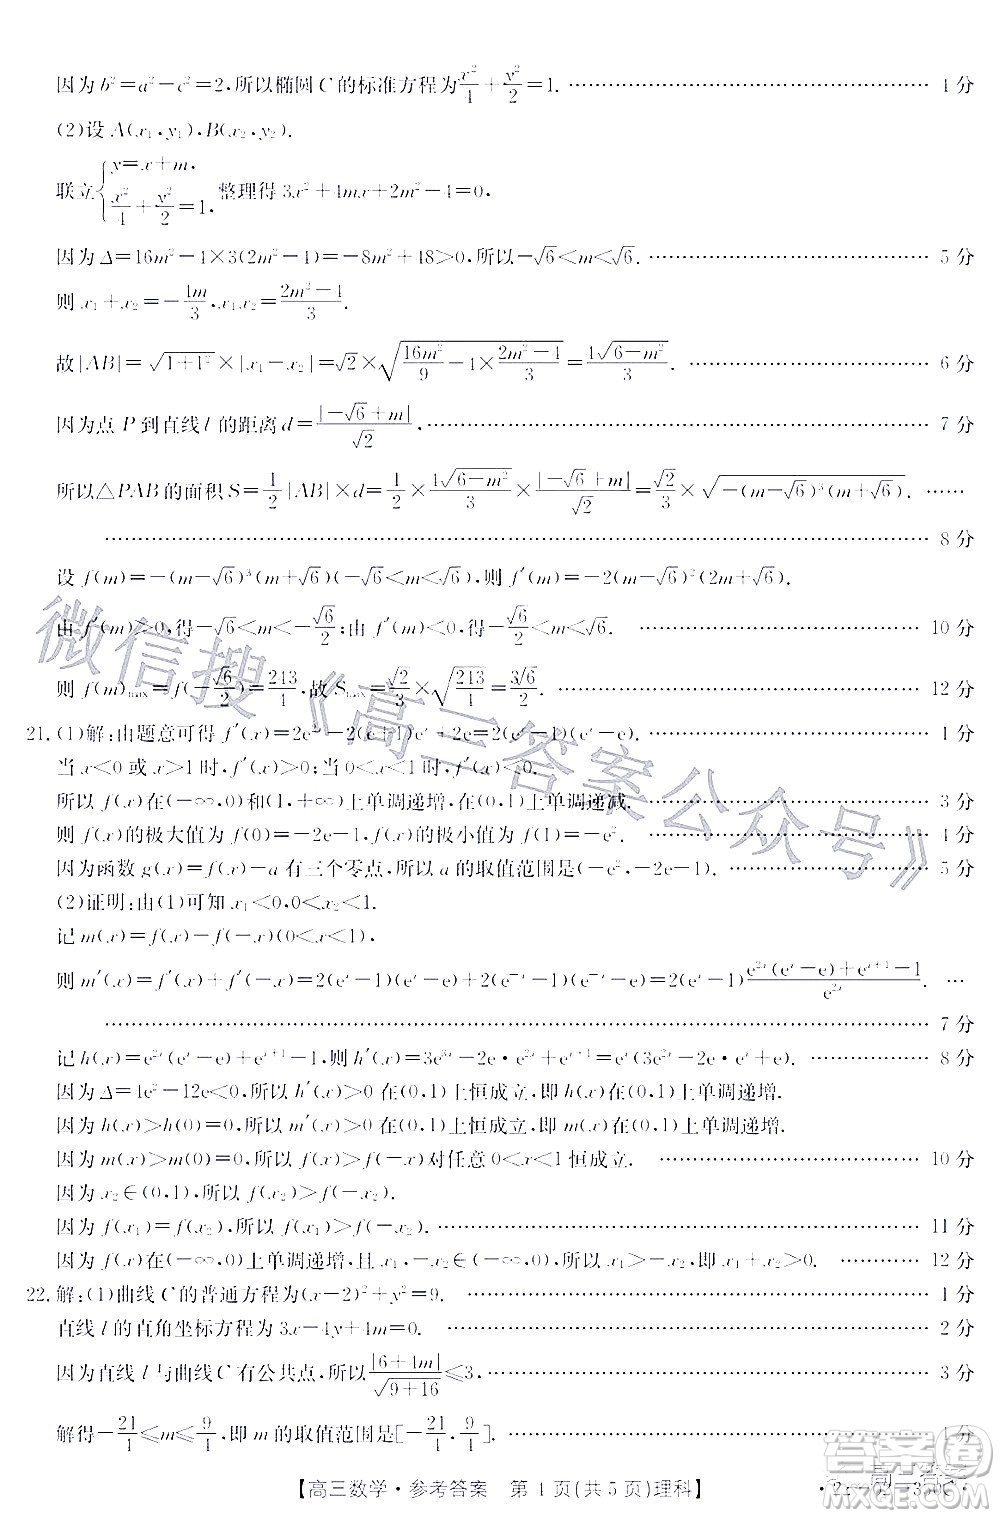 因为 b²=a²-c²=2,所以椭圆 C 的标准方程为x²/4+y²/2=1. …… 4 分
(2)设 A(x₁,y₁),B(x₂,y₂).
联立{y=x+m, x²/4+y²/2=1, 整理得 3x²+4mx+2m²-4=0,
因为 Δ=16m²-4×3(2m²-4)=-8m²+48>0,所以-√6<m<√6. …… 5 分
则 x₁+x₂=-4m/3,x₁x₂=(2m²-4)/3.
故|AB|=√(1+1²)×|x₁-x₂|=√2×√(16m²/9-4×(2m²-4)/3)=4√(6-m²)/3. …… 6 分
因为点 P 到直线 l 的距离 d=|-√6+m|/√2, …… 7 分
所以△PAB 的面积 S=1/2|AB|×d=1/2×4√(6-m²)/3×|-√6+m|/√2=√2/3×√(-(m-√6)³(m+√6)). ……
…… 8 分
设 f(m)=-(m-√6)³(m+√6)(-√6<m<√6),则 f′(m)=-2(m-√6)²(2m+√6).
由 f′(m)>0,得-√6<m<-√6/2;由 f′(m)<0,得-√6/2<m<√6. …… 10 分
则 f(m)max=f(-√6/2)=243/4,故 Smax=√2/3×√(243/4)=3√6/2. …… 12 分
21. (1)解:由题意可得 f′(x)=2e²ˣ-2(e+1)eˣ+2e=2(eˣ-1)(eˣ-e). …… 1 分
当 x<0 或 x>1 时,f′(x)>0;当 0<x<1 时,f′(x)<0.
所以 f(x)在(-∞,0)和(1,+∞)上单调递增,在(0,1)上单调递减. …… 3 分
则 f(x)的极大值为 f(0)=-2e-1,f(x)的极小值为 f(1)=-e².
因为函数 g(x)=f(x)-a 有三个零点,所以 a 的取值范围是(-e²,-2e-1). …… 5 分
(2)证明:由(1)可知 x₁<0,0<x₂<1.
记 m(x)=f(x)-f(-x)(0<x<1),
则 m′(x)=f′(x)+f′(-x)=2(eˣ-1)(eˣ-e)+2(e⁻ˣ-1)(e⁻ˣ-e)=2(eˣ-1)(e²ˣ(eˣ-e)+eˣ⁺¹-1)/e²ˣ. …
…… 7 分
记 h(x)=e²ˣ(eˣ-e)+eˣ⁺¹-1,则 h′(x)=3e³ˣ-2e·e²ˣ+e·eˣ=eˣ(3e²ˣ-2e·eˣ+e). …… 8 分
因为 Δ=4e²-12e<0,所以 h′(x)>0 在(0,1)上恒成立,即 h(x)在(0,1)上单调递增.
因为 h(x)>h(0)=0,所以 m′(x)>0 在(0,1)上恒成立,即 m(x)在(0,1)上单调递增.
因为 m(x)>m(0)=0,所以 f(x)>f(-x)对任意 0<x<1 恒成立. …… 10 分
因为 x₂∈(0,1),所以 f(x₂)>f(-x₂).
因为 f(x₁)=f(x₂),所以 f(x₁)>f(-x₂). …… 11 分
因为 f(x)在(-∞,0)上单调递增,且 x₁,-x₂∈(-∞,0),所以 x₁>-x₂,即 x₁+x₂>0. …… 12 分
22. 解:(1)曲线 C 的普通方程为(x-2)²+y²=9. …… 1 分
直线 l 的直角坐标方程为 3x-4y+4m=0. …… 2 分
因为直线 l 与曲线 C 有公共点,所以|6+4m|/√(9+16)≤3, …… 3 分
解得-21/4≤m≤9/4,即 m 的取值范围是[-21/4,9/4]. …… 4 分
【高三数学·参考答案 第 4 页(共 5 页)理科】
微信搜《高三答案公众号》
答案圈